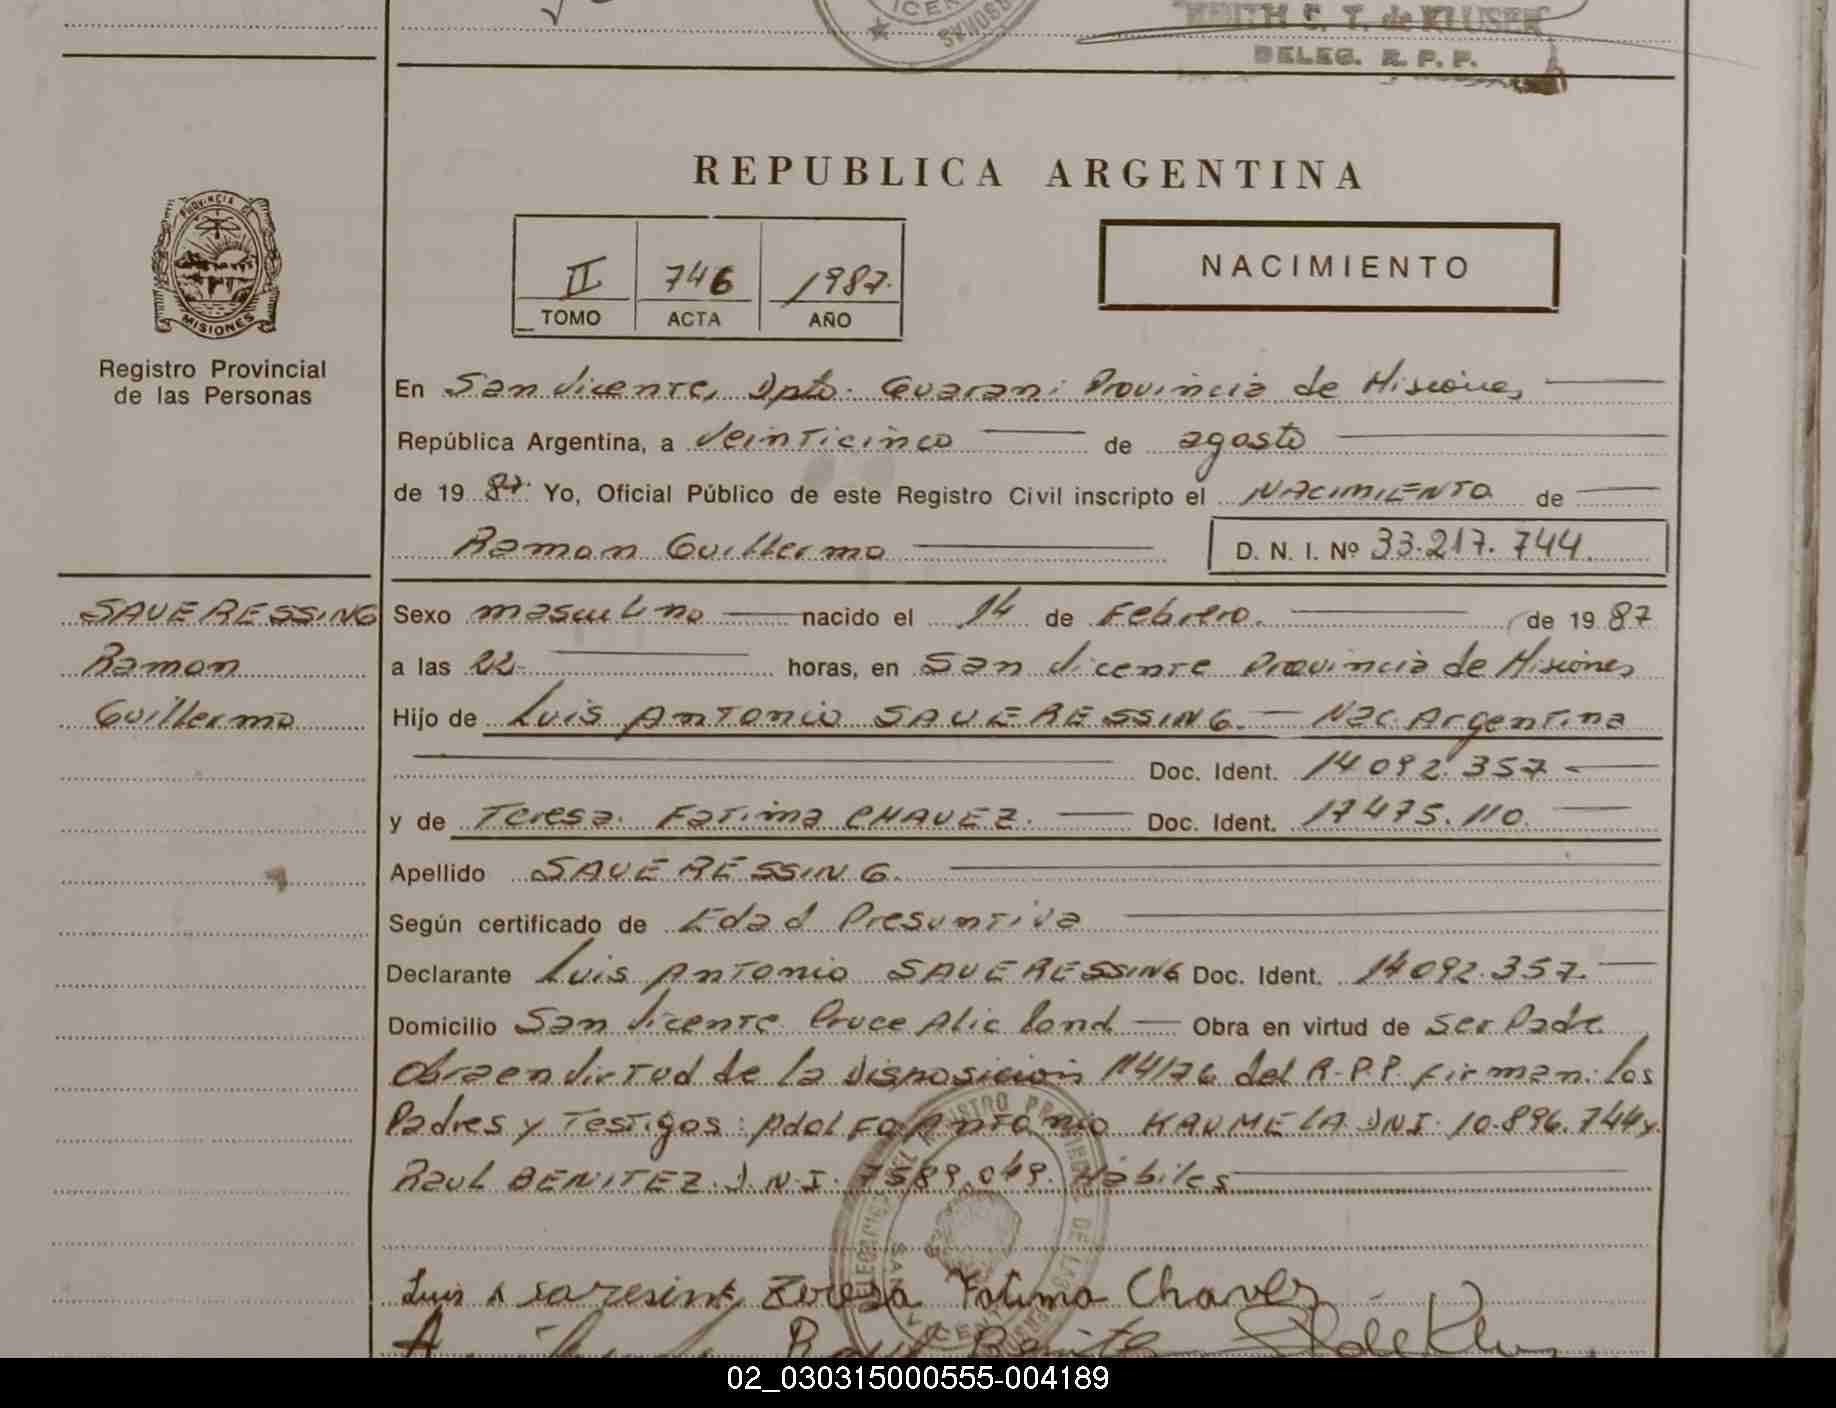 ICEN
SONAS
EDITH S. T. de KLUSER
DELEG. R. P. P.
REPUBLICA ARGENTINA
PROVINCIA DE
MISIONES
Registro Provincial
de las Personas
II 746 1987.
TOMO ACTA AÑO
NACIMIENTO
En San Vicente, Dpto. Guarani Provincia de Misiones
República Argentina, a Veinticinco de agosto
de 19 87. Yo, Oficial Público de este Registro Civil inscripto el NACIMIENTO de
Ramon Guillermo D. N. I. Nº 33.217.744.
SAUERESSING
Ramon
Guillermo
Sexo masculino nacido el 14 de Febrero. de 19 87
a las 22- horas, en San Vicente Provincia de Misiones
Hijo de Luis Antonio SAUERESSING. Nac. Argentina
Doc. Ident. 14092.357
y de Teresa Fatima CHAVEZ. Doc. Ident. 17475.110.
Apellido SAUERESSING.
Según certificado de Edad Presuntiva
Declarante Luis Antonio SAUERESSING Doc. Ident. 14092.357.
Domicilio San Vicente Cruce Obra en virtud de ser Padre
Obra en Virtud de la Disposicion 114/76 del R.P.P. firman: los
Padres y Testigos: Adolfo Antonio KAUMELA DNI. 10.896.744 y
Raul BENITEZ. D.N.I. 7589.049. Habiles
Luis A saresing Teresa Fatima Chavez
Raul Benitez
02_030315000555-004189